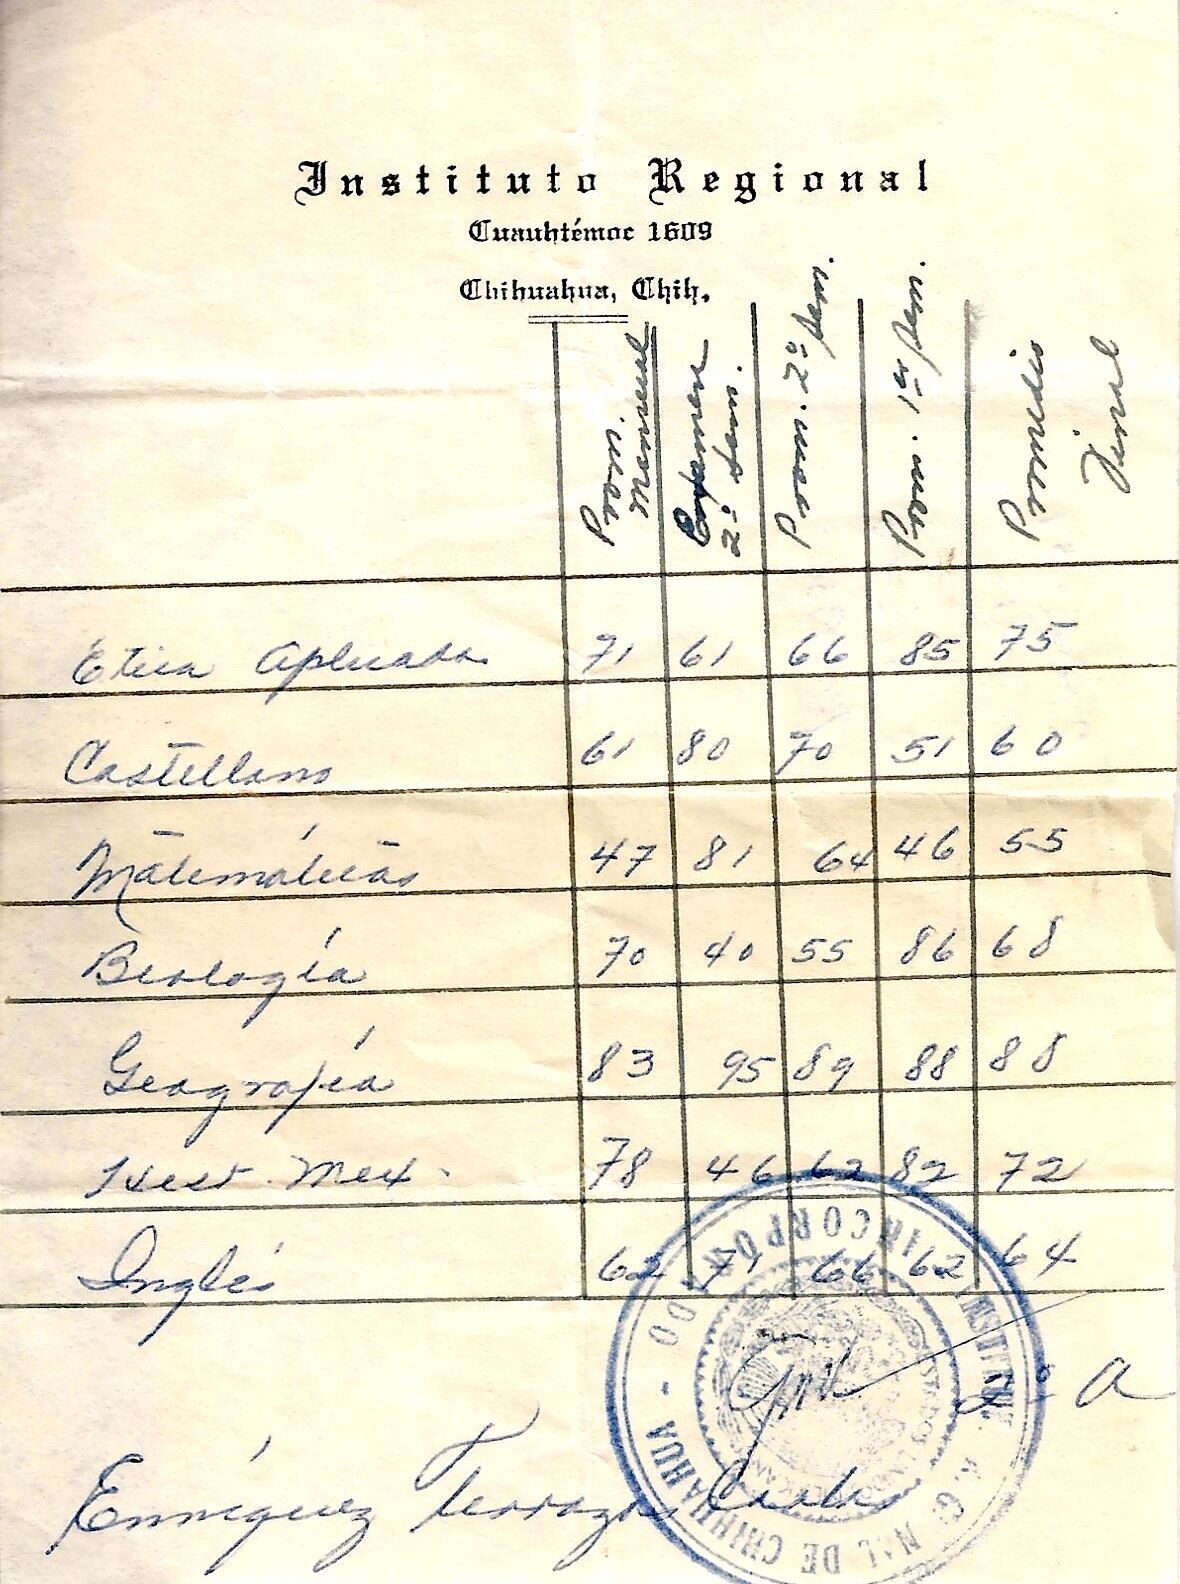 Instituto Regional
Cuauhtémoc 1609
Chihuahua, Chih.
Prom. Mensual
Examen 2º sem.
Prom. 2º sem.
Prom. 1er sem.
Promedio Final
Etica Aplicada 71 61 66 85 75
Castellano 61 80 70 51 60
Matemáticas 47 81 64 46 55
Biología 70 40 55 86 68
Geografía 83 95 89 88 88
Hist. Mex. 78 46 62 82 72
Inglés 62 71 66 62 64
INSTITUTO REGIONAL DE CHIHUAHUA - INCORPORADO
2º A
Enríquez Terrazas Carlos